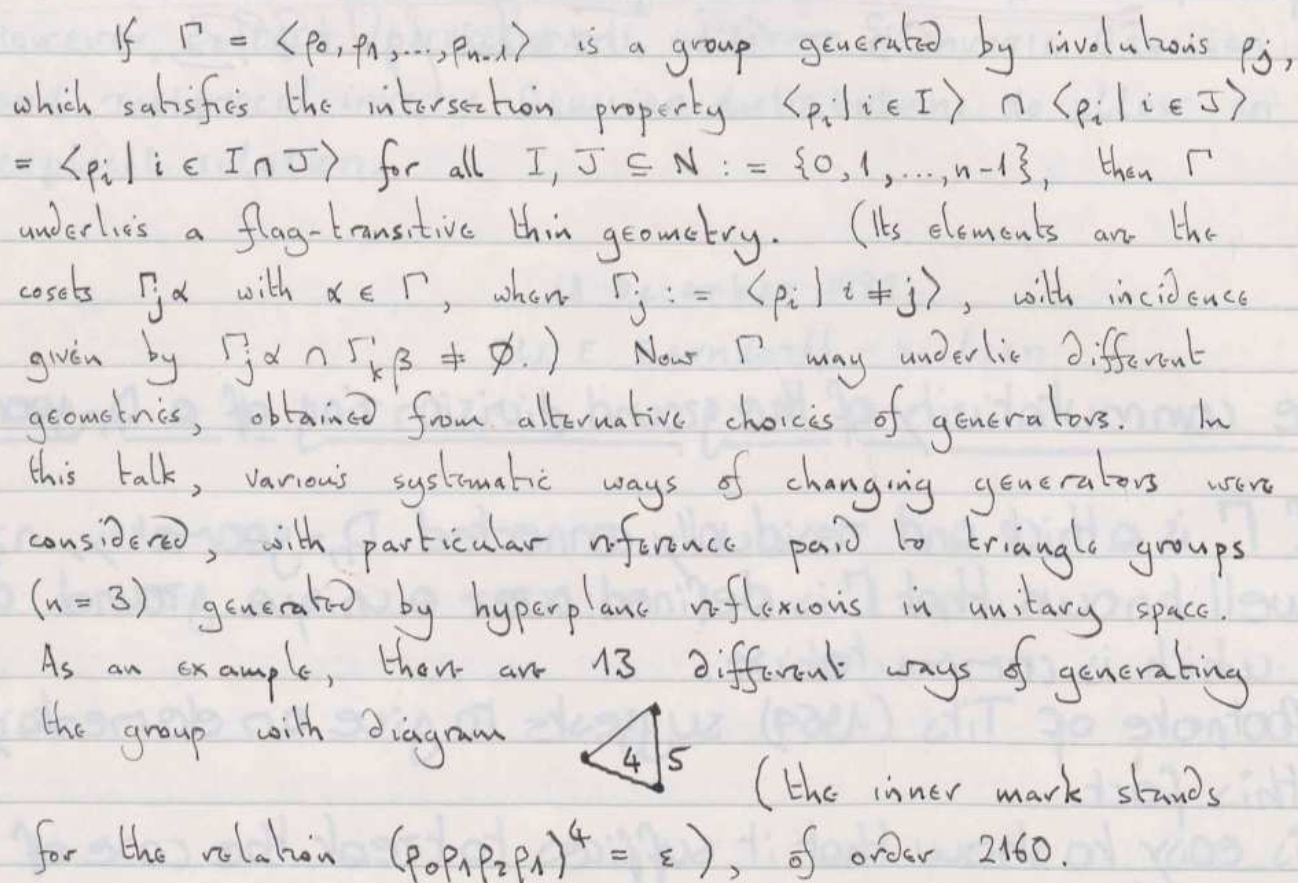 If Γ = <ρ₀, ρ₁,..., ρₙ₋₁> is a group generated by involutions ρⱼ,
which satisfies the intersection property <ρᵢ | i ∈ I> ∩ <ρᵢ | i ∈ J>
= <ρᵢ | i ∈ I ∩ J> for all I, J ⊆ N := {0, 1, ..., n-1}, then Γ
underlies a flag-transitive thin geometry. (Its elements are the
cosets Γⱼα with α ∈ Γ, where Γⱼ := <ρᵢ | i ≠ j>, with incidence
given by Γⱼα ∩ Γₖβ ≠ ∅.) Now Γ may underlie different
geometries, obtained from alternative choices of generators. In
this talk, various systematic ways of changing generators were
considered, with particular reference paid to triangle groups
(n=3) generated by hyperplane reflexions in unitary space.
As an example, there are 13 different ways of generating
the group with diagram 4 5
(the inner mark stands
for the relation (ρ₀ρ₁ρ₂ρ₁)⁴ = ε), of order 2160.